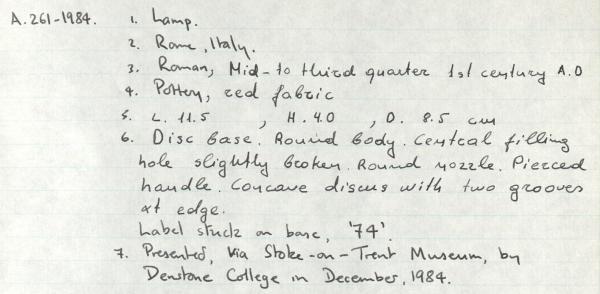 A.261-1984. 1. Lamp.
2. Rome, Italy.
3. Roman, Mid- to third quarter 1st century A.D
4. Pottery, red fabric
5. L. 11.5 , H. 4.0 , D. 8.5 cm
6. Disc base. Round body. Central filling
hole slightly broken. Round nozzle. Pierced
handle. Concave discus with two grooves
at edge.
Label stuck on base, '74'.
7. Presented, via Stoke-on-Trent Museum, by
Denstone College in December, 1984.